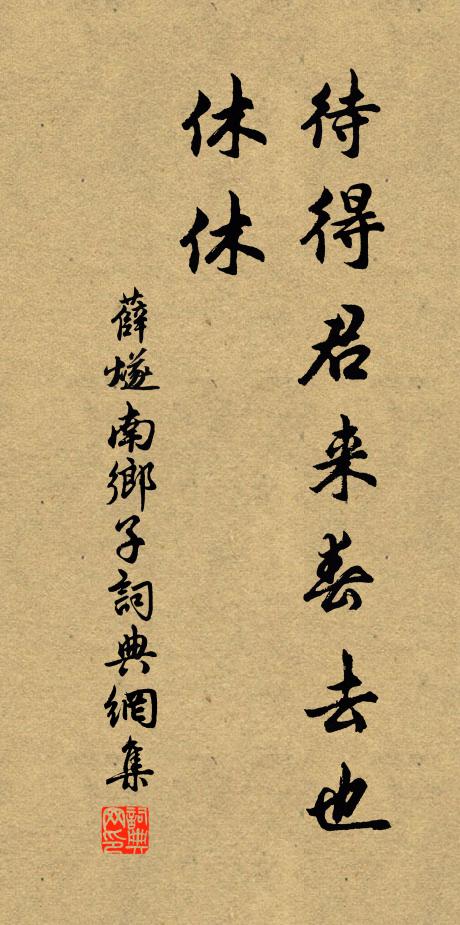 待得君来春去也
休休
薛燧南鄉子詞典網集
詞典网印